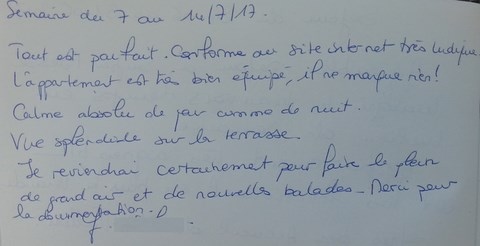 Semaine du 7 au 14/7/17.
Tout est parfait. Conforme au site internet très ludique
L'appartement est très bien équipé, il ne manque rien!
Calme absolu de jour comme de nuit.
Vue splendide sur la terrasse.
Je reviendrai certainement pour faire le plein
de grand air et de nouvelles balades - Merci pour
la documentation.